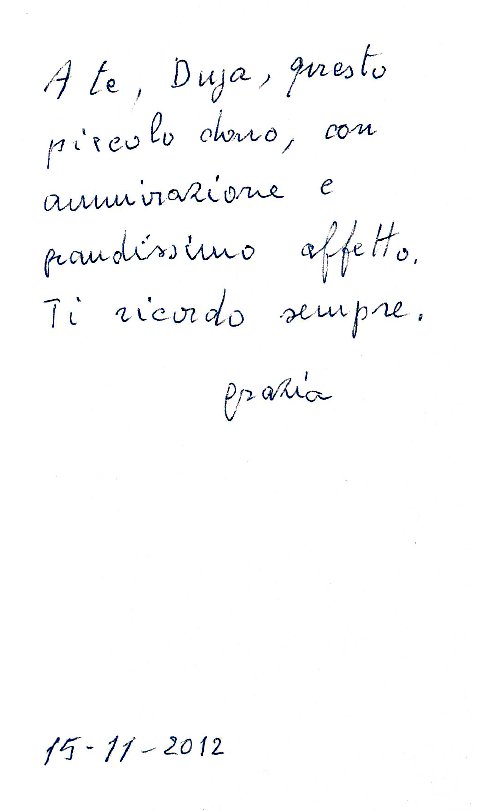 A te, Duja, questo
piccolo dono, con
ammirazione e
grandissimo affetto.
Ti ricordo sempre.
grazia
15-11-2012